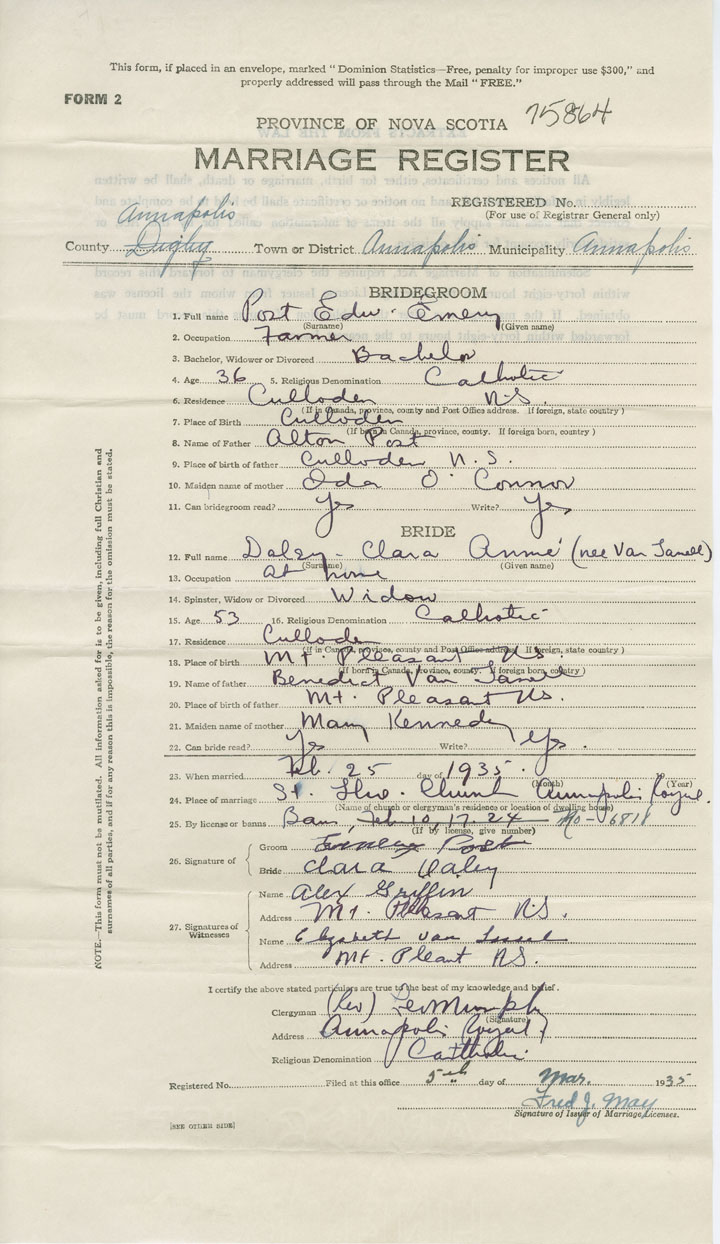 This form, if placed in an envelope, marked "Dominion Statistics—Free, penalty for improper use $300," and
properly addressed will pass through the Mail "FREE."
FORM 2
75864
PROVINCE OF NOVA SCOTIA
MARRIAGE REGISTER
REGISTERED No.
(For use of Registrar General only)
Annapolis
County Digby Town or District Annapolis Municipality Annapolis
BRIDEGROOM
1. Full name Post Edw. Emery
(Surname) (Given name)
2. Occupation Farmer
3. Bachelor, Widower or Divorced Bachelor
4. Age 36 5. Religious Denomination Catholic
6. Residence Culloden N.S.
(If in Canada, province, county and Post Office address. If foreign, state country)
7. Place of Birth Culloden
(If born in Canada, province, county. If foreign born, country)
8. Name of Father Alton Post
9. Place of birth of father Culloden N.S.
10. Maiden name of mother Ida O'Connor
11. Can bridegroom read? Yes Write? Yes
BRIDE
12. Full name Daley - Clara Annie (nee Van Tassell)
(Surname) (Given name)
13. Occupation at home
14. Spinster, Widow or Divorced Widow
15. Age 53 16. Religious Denomination Catholic
17. Residence Culloden
(If in Canada, province, county and Post Office address. If foreign, state country)
18. Place of birth Mt. Pleasant N.S.
(If born in Canada, province, county. If foreign born, country)
19. Name of father Benedict Van Tassell
20. Place of birth of father Mt. Pleasant N.S.
21. Maiden name of mother Mary Kennedy
22. Can bride read? Yes Write? Yes.
23. When married Feb. 25 day of 1935.
(Month) (Year)
24. Place of marriage St. Church Annapolis Royal.
(Name of church or clergyman's residence or location of dwelling house)
25. By license or banns Bans, Feb 10, 17. 24 — No-6818
(If by license, give number)
26. Signature of
Groom Emery Post
Bride Clara Daley
27. Signatures of Witnesses
Name Alex Griffin
Address Mt. Pleasant N.S.
Name Elizabeth Van Tassell
Address Mt. Pleant N.S.
I certify the above stated particulars are true to the best of my knowledge and belief.
Clergyman (Rev) Leo Murphy
(Signature)
Address Annapolis Royal
Religious Denomination Catholic
Registered No. Filed at this office 5th day of Mar. 1935
Fred J. May
Signature of Issuer of Marriage Licenses.
[SEE OTHER SIDE]
NOTE.—This form must not be mutilated. All information asked for is to be given, including full Christian and
surnames of all parties, and if for any reason this is impossible, the reason for the omission must be stated.